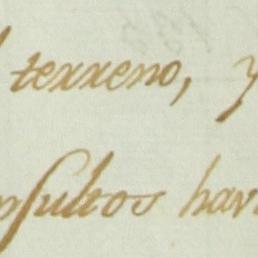 terreno, y
insultos hav